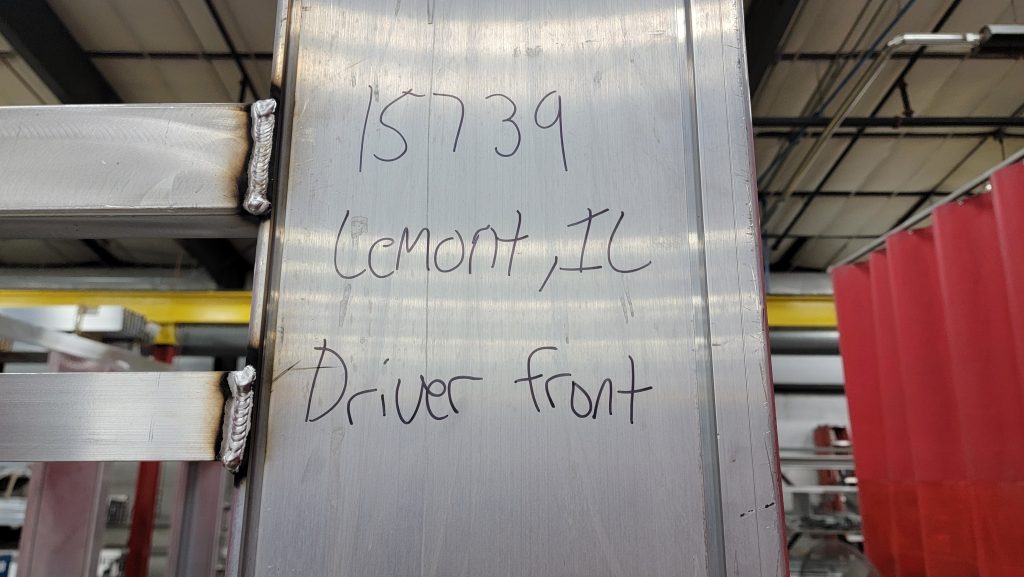 15739
Lemont, IL
Driver front